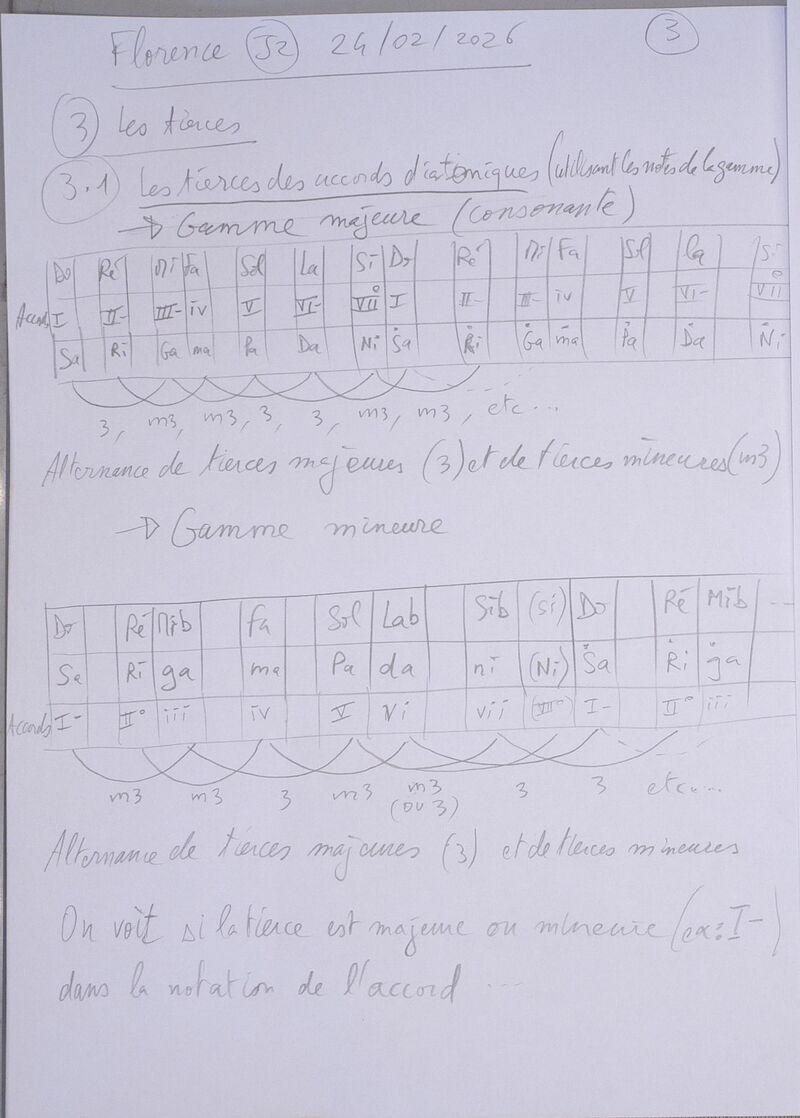 Florence J2 24/02/2026 3
3 Les tierces
3.1 Les tierces des accords diatoniques (utilisant les notes de la gamme)
→ Gamme majeure (consonante)
Do Ré Mi Fa Sol La Si Do Ré Mi Fa Sol La Si
Accords I II- III- iv V VI- VII° I II- III- iv V VI- VII°
Sa Ri Ga ma Pa Da Ni Ṡa Ṙi Ġa ṁa Ṗa Ḋa Ṅi
3, m3, m3, 3, 3, m3, m3, etc...
Alternance de tierces majeures (3) et de tierces mineures (m3)
→ Gamme mineure
Do Ré Mib Fa Sol Lab Sib (Si) Do Ré Mib ...
Sa Ri ga ma Pa da ni (Ni) Ṡa Ṙi ġa
Accords I- II° iii iv V Vi vii (VII°) I- II° iii
m3 m3 3 m3 m3 3 3 etc...
(ou 3)
Alternance de tierces majeures (3) et de tierces mineures
On voit si la tierce est majeure ou mineure (ex: I-)
dans la notation de l'accord ...